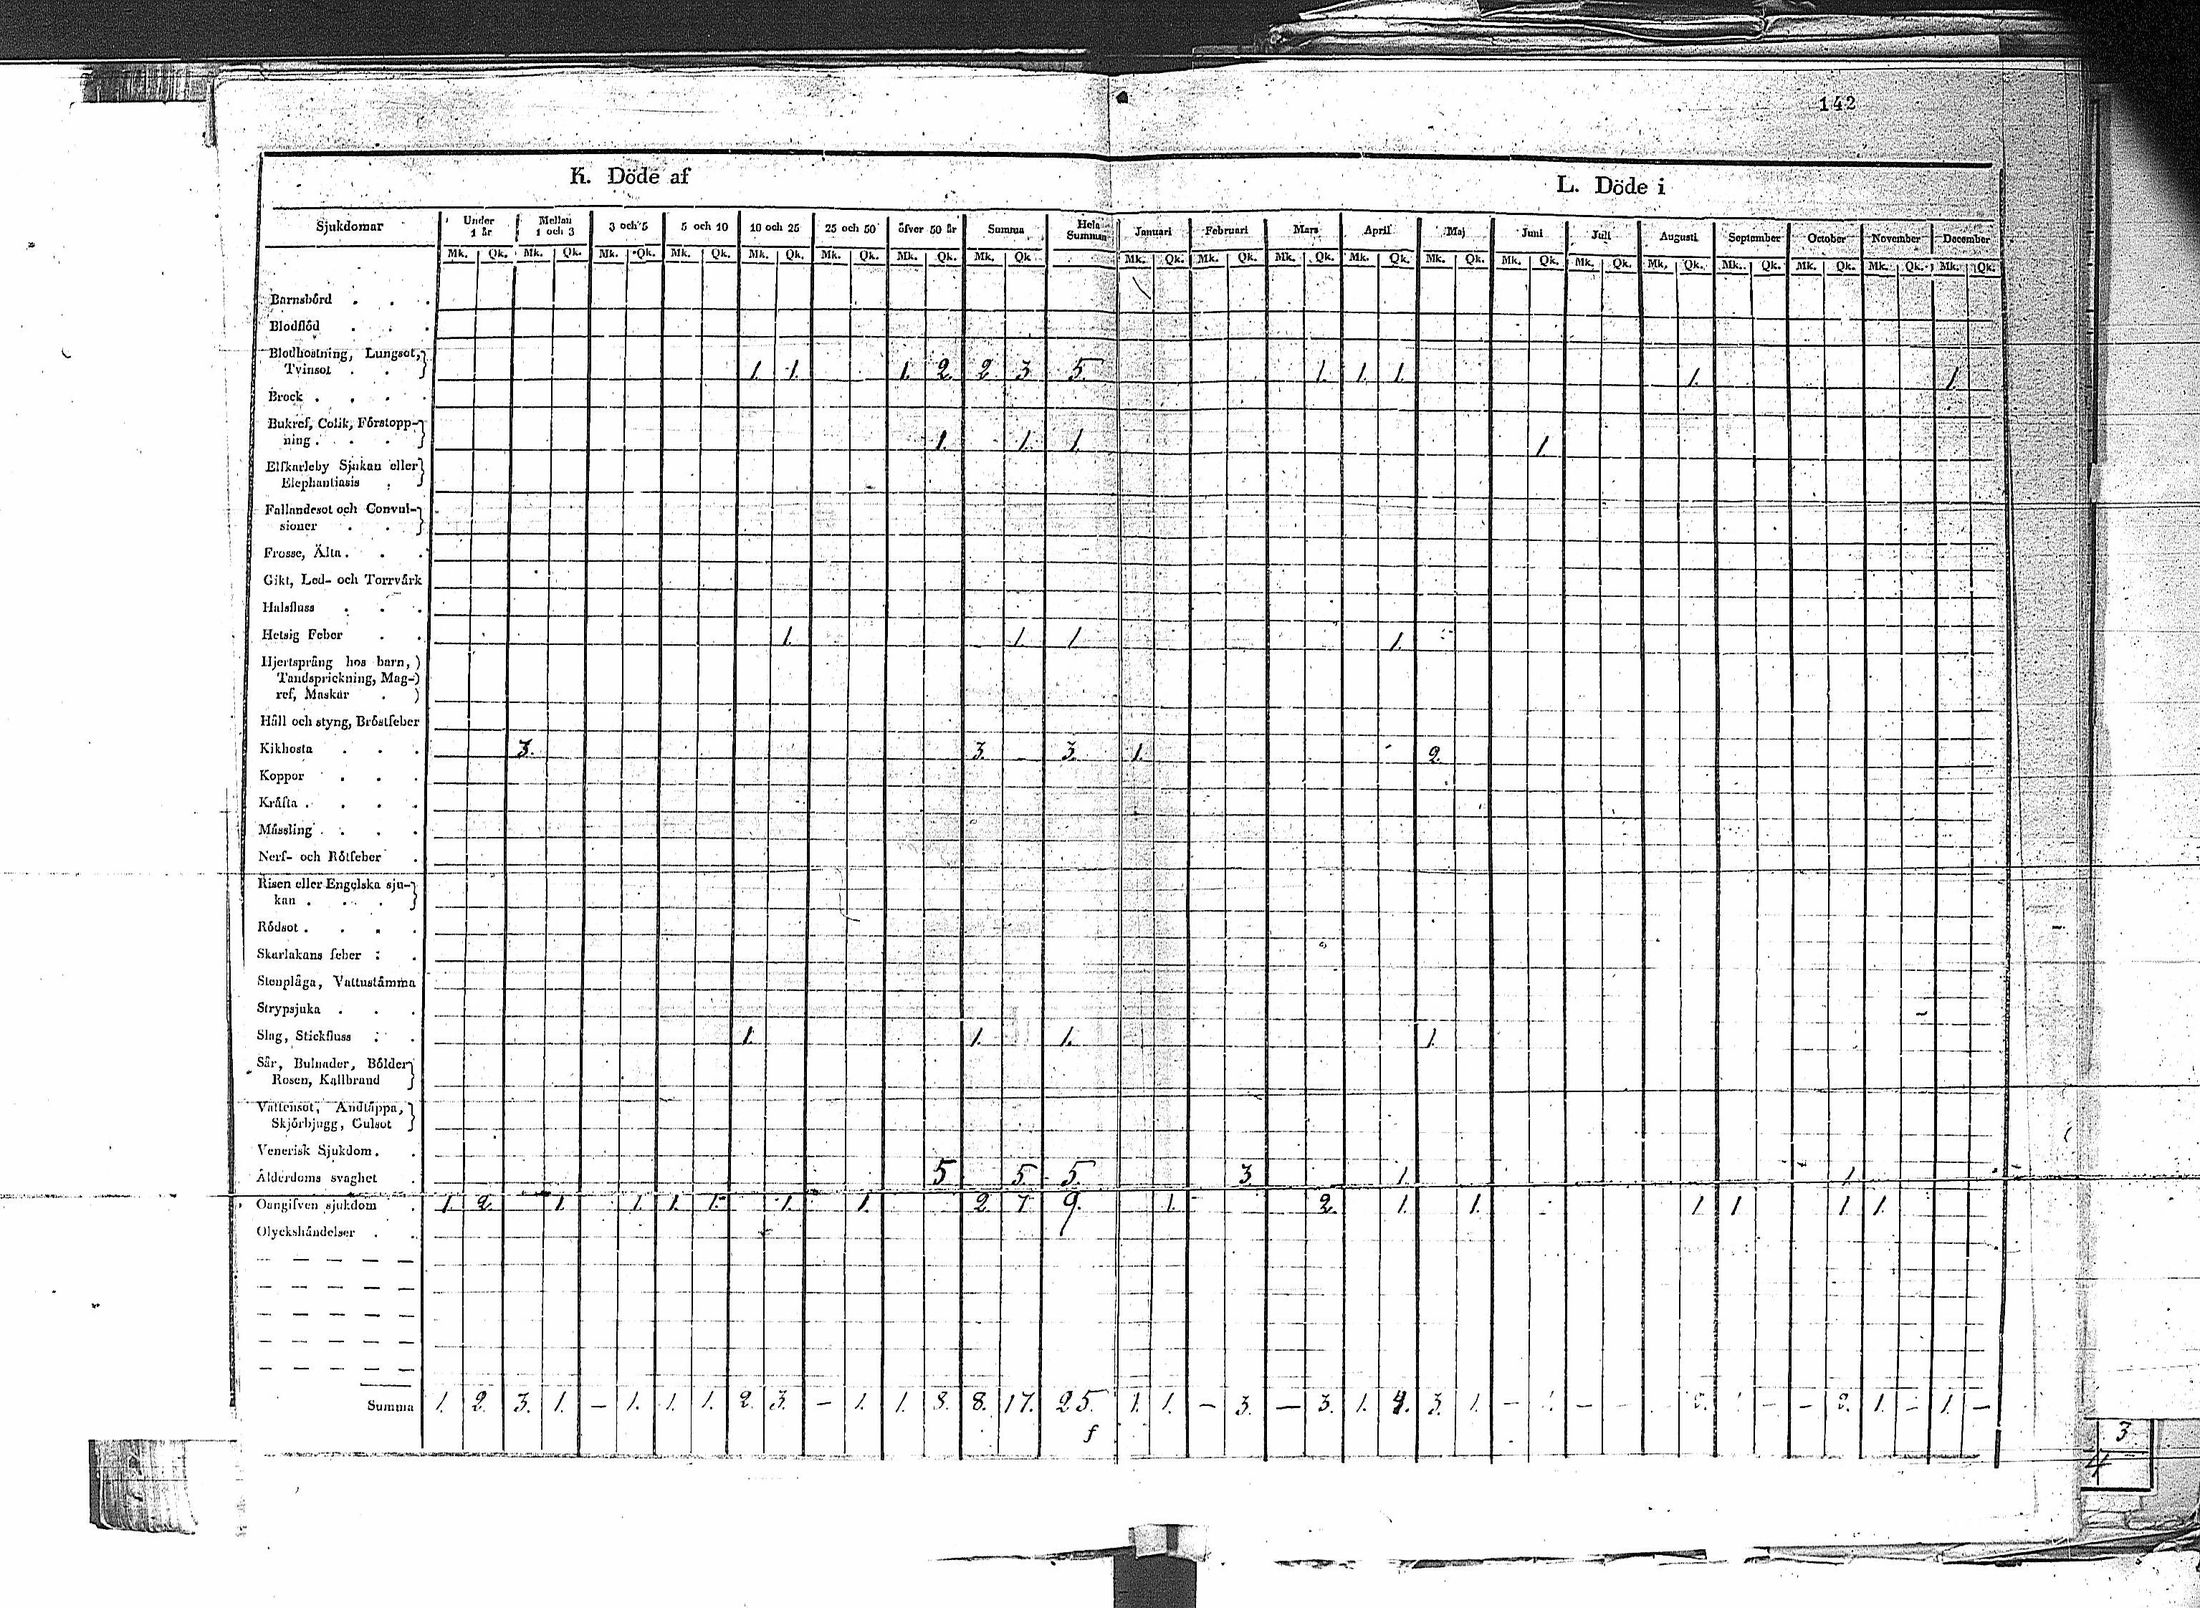 142
K. Döde af
L. Döde i
Sjukdomar Under 1 år Mellan 1 och 3 3 och 5 5 och 10 10 och 25 25 och 50 öfver 50 år Summa Hela Summan Januari Februari Mars April Maj Juni Juli Augusti September October November December
Mk. Qk. Mk. Qk. Mk. Qk. Mk. Qk. Mk. Qk. Mk. Qk. Mk. Qk. Mk. Qk. Mk. Qk. Mk. Qk. Mk. Qk. Mk. Qk. Mk. Qk. Mk. Qk. Mk. Qk. Mk. Qk. Mk. Qk. Mk. Qk. Mk. Qk. Mk. Qk.
Barnsbörd . . .
Blodflöd . . .
Blodhostning, Lungsot,
Tvinsot . . 1. 1. 1. 2. 2 3 5. 1. 1. 1. 1. 1.
Brock . . . .
Bukref, Colik, Förstopp-
ning . . . 1. 1. 1. 1
Elfkarleby Sjukan eller
Elephantiasis .
Fallandesot och Convul-
sioner . .
Frosse, Älta . . .
Gikt, Led- och Torrvärk
Halsfluss . . .
Hetsig Feber . . 1. 1 1 1.
Hjertsprång hos barn,
Tandsprickning, Mag-
ref, Maskar .
Håll och styng, Bröstfeber
Kikhosta . . . 3. 3. 3. 1. 2.
Koppor . . .
Kräfta . . . .
Mässling . . . .
Nerf- och Rötfeber .
Risen eller Engelska sju-
kan . . .
Rödsot . . . .
Skarlakans feber : .
Stenplåga, Vattustämma
Strypsjuka . . .
Slag, Stickfluss : . 1. 1. 1. 1.
Sår, Bulnader, Bölder
Rosen, Kallbrand
Vattensot, Andtäppa,
Skjörbjugg, Gulsot
Venerisk Sjukdom . .
Ålderdoms svaghet . 5 5 5. 3. 1. 1.
Oangifven sjukdom . 1. 2. 1. 1. 1. 1. 1. 1. 2 7 9. 1. 2. 1. 1. 1. 1 1. 1.
Olyckshändelser . .
Summa 1. 2. 3. 1. — 1. 1. 1. 2. 3. — 1. 1. 8. 8. 17. 25. 1. 1. — 3. — 3. 1. 4. 3. 1. — — — 2. — — 2. 1. — 1. —
f
3
4